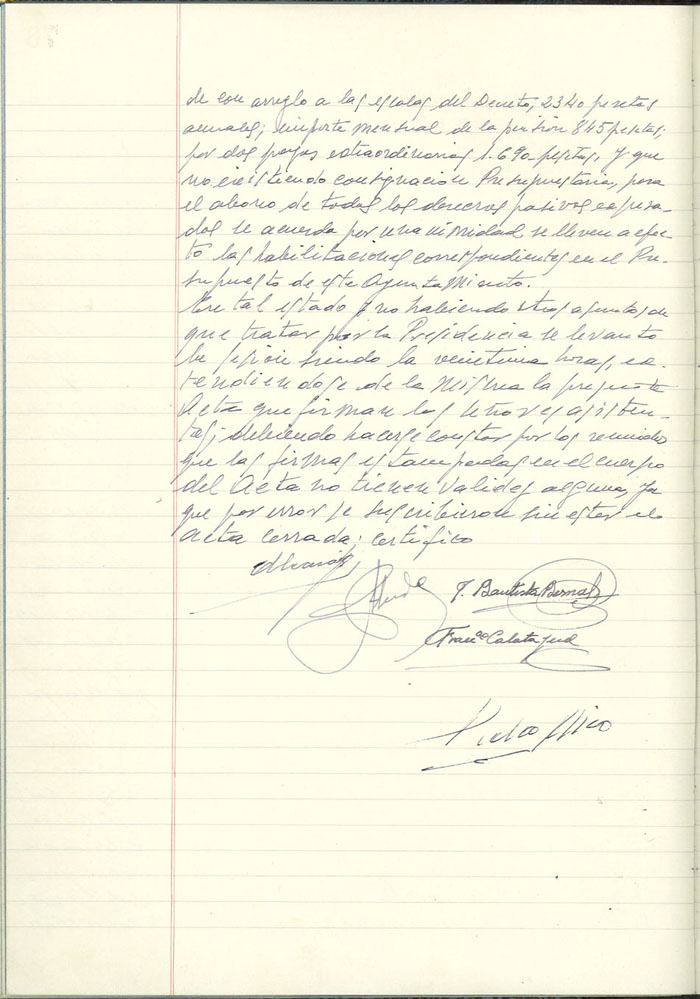 de con arreglo a las escalas del Decreto, 2340 pesetas
anuales; importe mensual de la pensión 845 pesetas;
por dos pagas extraordinarias 1.690 pesetas. Y que
no existiendo consignación Presupuestaria, para
el abono de todos los derechos pasivos expresa-
dos se acuerda por unanimidad se lleven a efec-
to las habilitaciones correspondientes en el Pre-
supuesto de este Ayuntamiento.
En tal estado y no habiendo otros asuntos de
que tratar por la Presidencia se levantó
la sesión siendo la veintiuna horas, ex-
tendiendose de la misma la presente
Acta que firman los señores asisten-
tes; debiendo hacerse constar por los reunidos
que las firmas estampadas en el cuerpo
del Acta no tienen validez alguna, ya
que por error se suscribieron sin estar el
acta cerrada; certifico
J. Bautista Bernal
Franco Calatayud